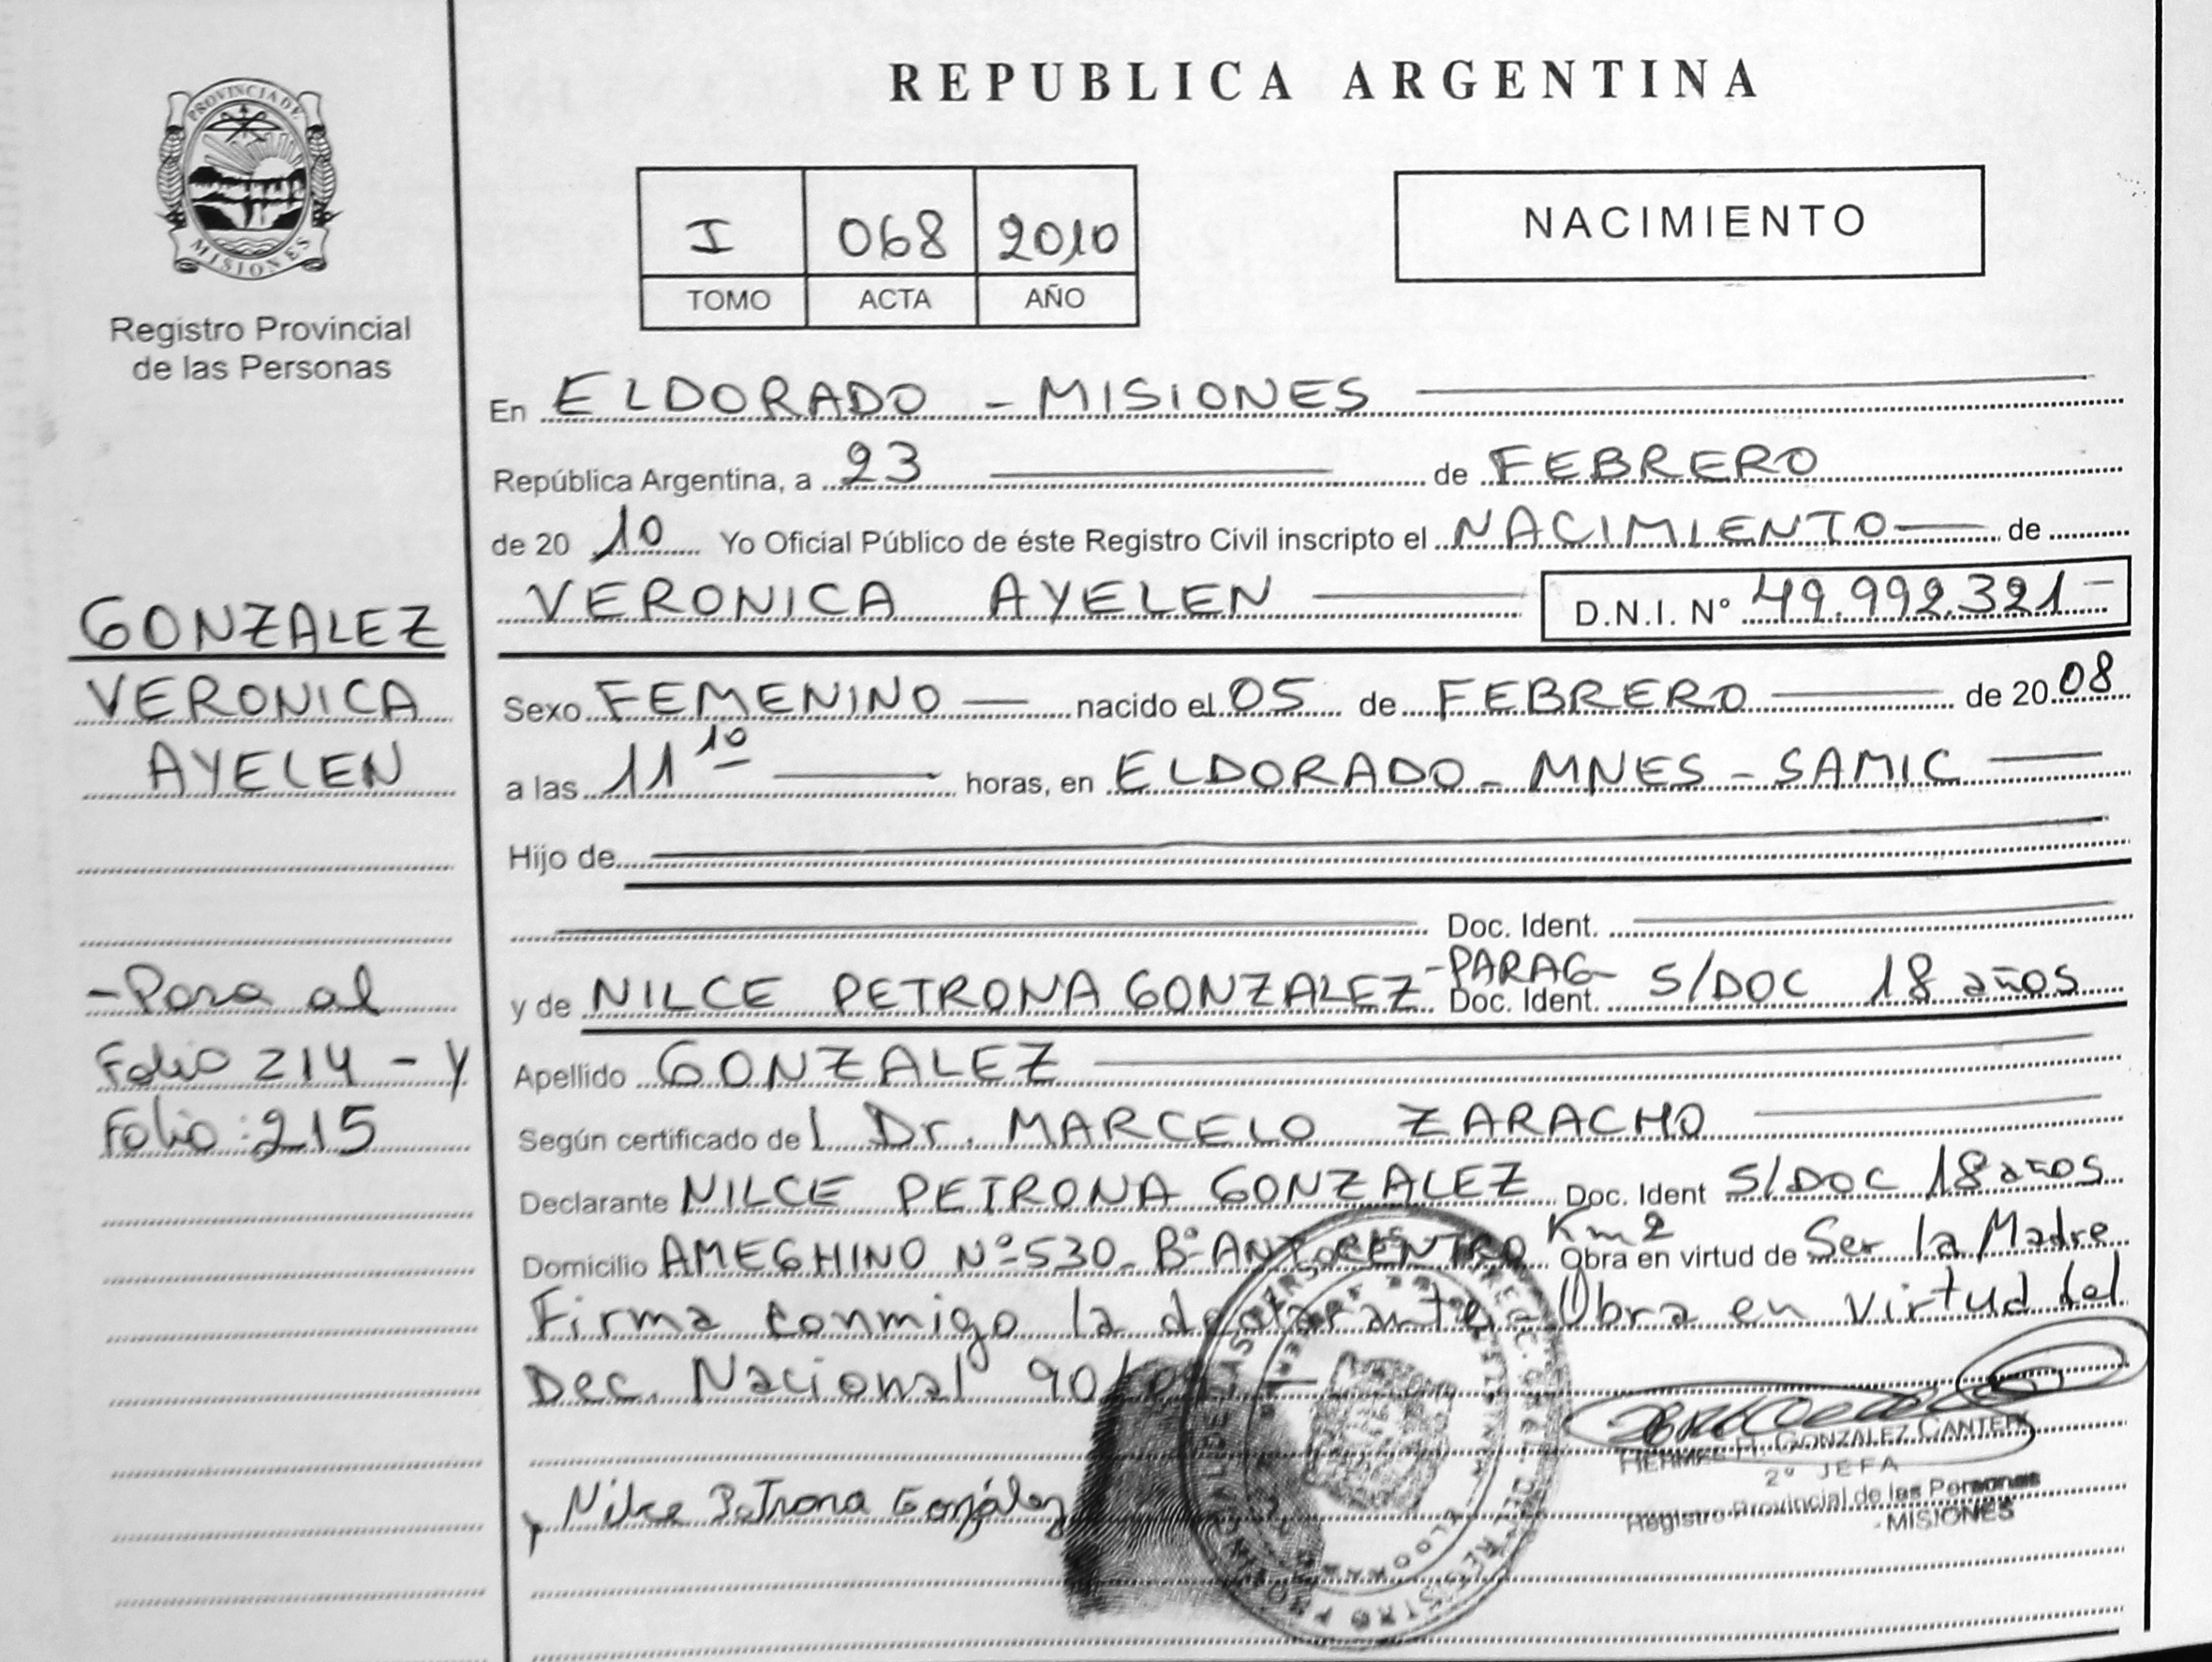 REPUBLICA ARGENTINA
PROVINCIA DE
MISIONES
Registro Provincial
de las Personas
I 068 2010
TOMO ACTA AÑO
NACIMIENTO
En ELDORADO - MISIONES
República Argentina, a 23 de FEBRERO
de 20 10 Yo Oficial Público de éste Registro Civil inscripto el NACIMIENTO de
VERONICA AYELEN D.N.I. Nº 49.992.321-
GONZALEZ
VERONICA
AYELEN
Sexo FEMENINO nacido el 05 de FEBRERO de 20 08
a las 11 10 horas, en ELDORADO - MNES - SAMIC
Hijo de
Doc. Ident.
y de NILCE PETRONA GONZALEZ -PARAG- Doc. Ident. S/DOC 18 años
-Pasa al
Folio 214 - y
Folio: 215
Apellido GONZALEZ
Según certificado del Dr. MARCELO ZARACHO
Declarante NILCE PETRONA GONZALEZ Doc. Ident S/DOC 18 años
Domicilio AMEGHINO Nº 530 - Bº ANT. CENTRO Km 2 Obra en virtud de Ser la Madre
Firma conmigo la declarante - Obra en virtud del
Dec. Nacional 90/09
Nilce Petrona González
HERMES H. GONZALEZ CANTERO
2º JEFA
Registro Provincial de las Personas
- MISIONES